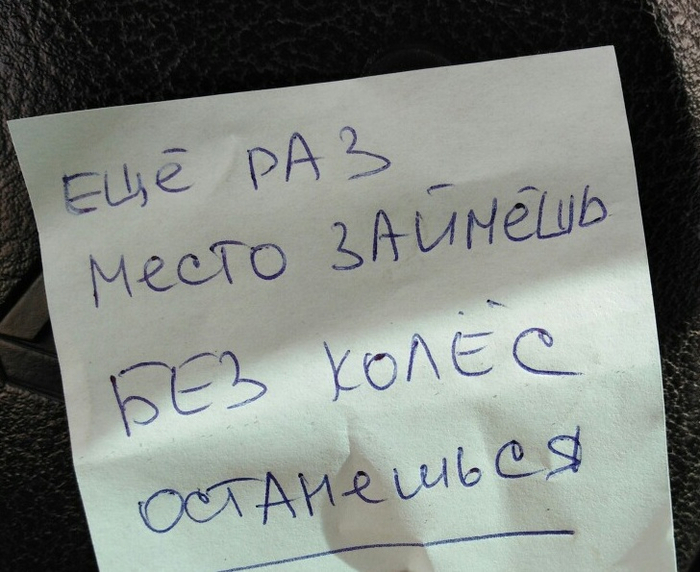 ЕЩЁ РАЗ
МЕСТО ЗАЙМЁШЬ
БЕЗ КОЛЁС
ОСТАНЕШЬСЯ